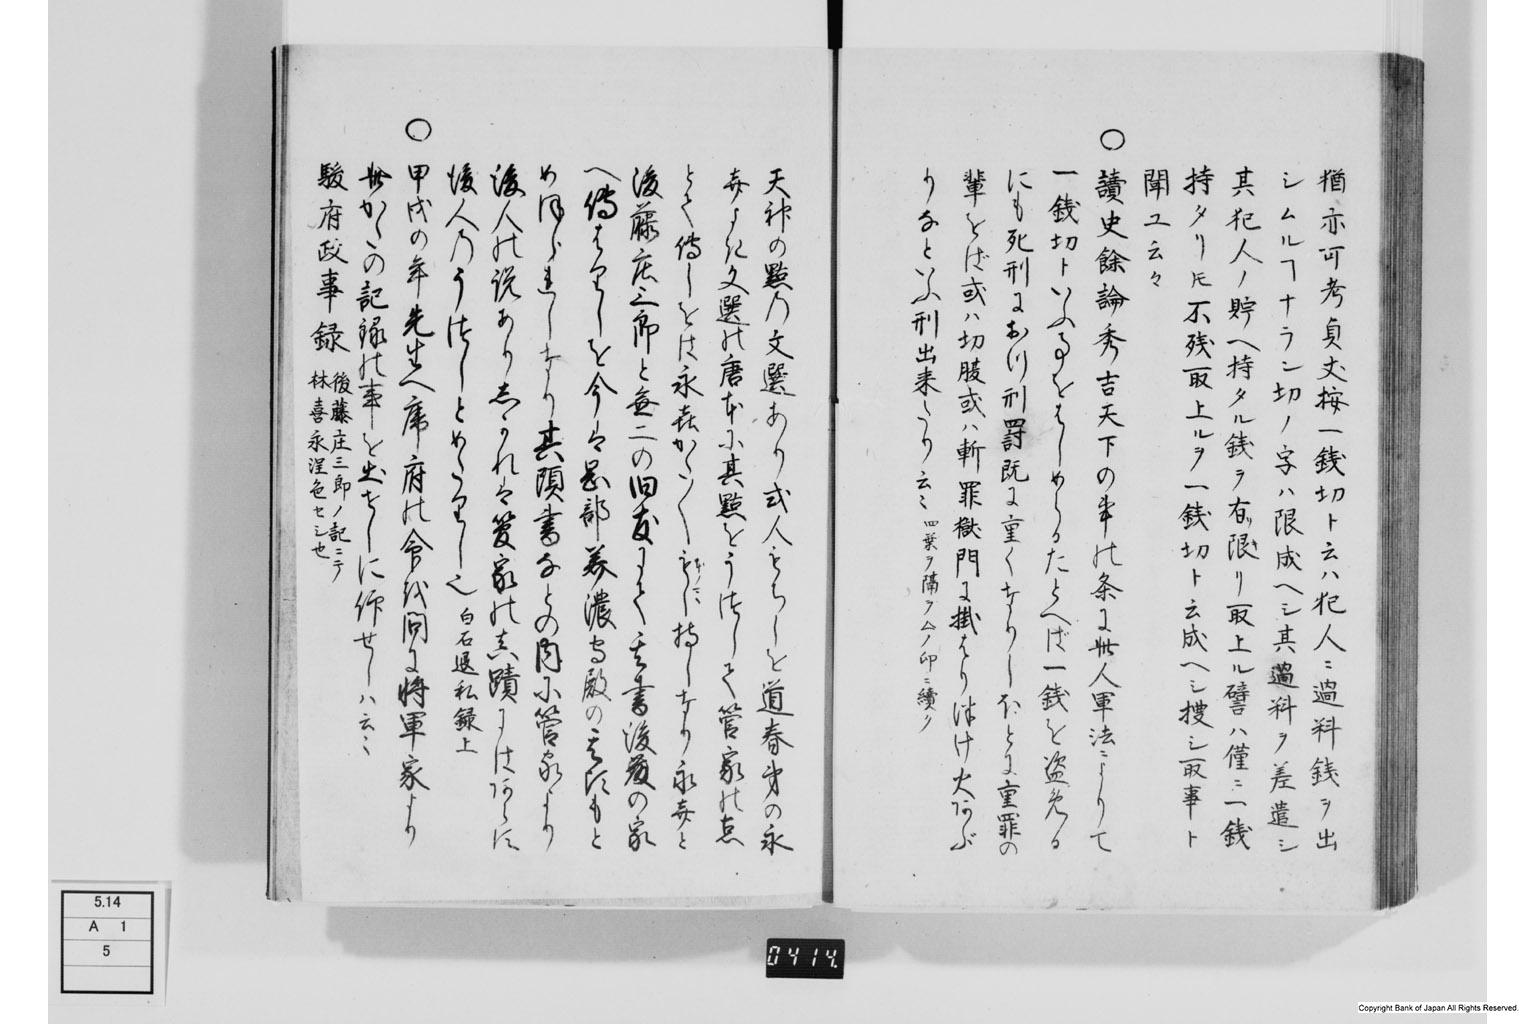 猶亦可考貞丈按一銭切ト云ハ犯人ニ過料銭ヲ出
シムルヿナラン切ノ字ハ限成ヘシ其過料ヲ差遣シ
其犯人ノ貯ヘ持タル銭ヲ有限リ取上ル譬ハ僅ニ一銭
持タリ𪜈不残取上ルヲ一銭切ト云成ヘシ捜シ取事ト
聞ユ云々
○
讀史餘論秀吉天下の事の条に此人軍法によりて
一銭切トいふ事をはしめらるたとへば一銭を盗める
にも死刑におけり刑罰既に重くなりしほとに重罪の
輩をば或ハ切腹或ハ斬罪獄門に掛はりつけ火あぶ
りなといふ刑出来たり云々 四葉ヲ隔テムノ印ニ續ク
天神の點乃文選あり或人もちしを道春弟の永
喜よき文選の唐本に其點をうつして菅家の点
とて傳しをは永喜かたく 持しなり永喜と
後藤庄三郎と無二の旧友にて 書後藤の家
へ傳はりしを今は 部美濃守殿の もと
め しなり其頭書なとの内に菅家より
後人の説ありしかれは菅家の真蹟には
後人のうつしとめ 也 白石退私録上
○
甲戌の年先生へ席府の會 問に将軍家より
此かたの記録の事を出せしに仰せしハ云々
駿府政事録 後藤庄三郎ノ記ニテ
林喜永涅色セシ也
5.14
A 1
5
0414
Copyright Bank of Japan All Rights Reserved.